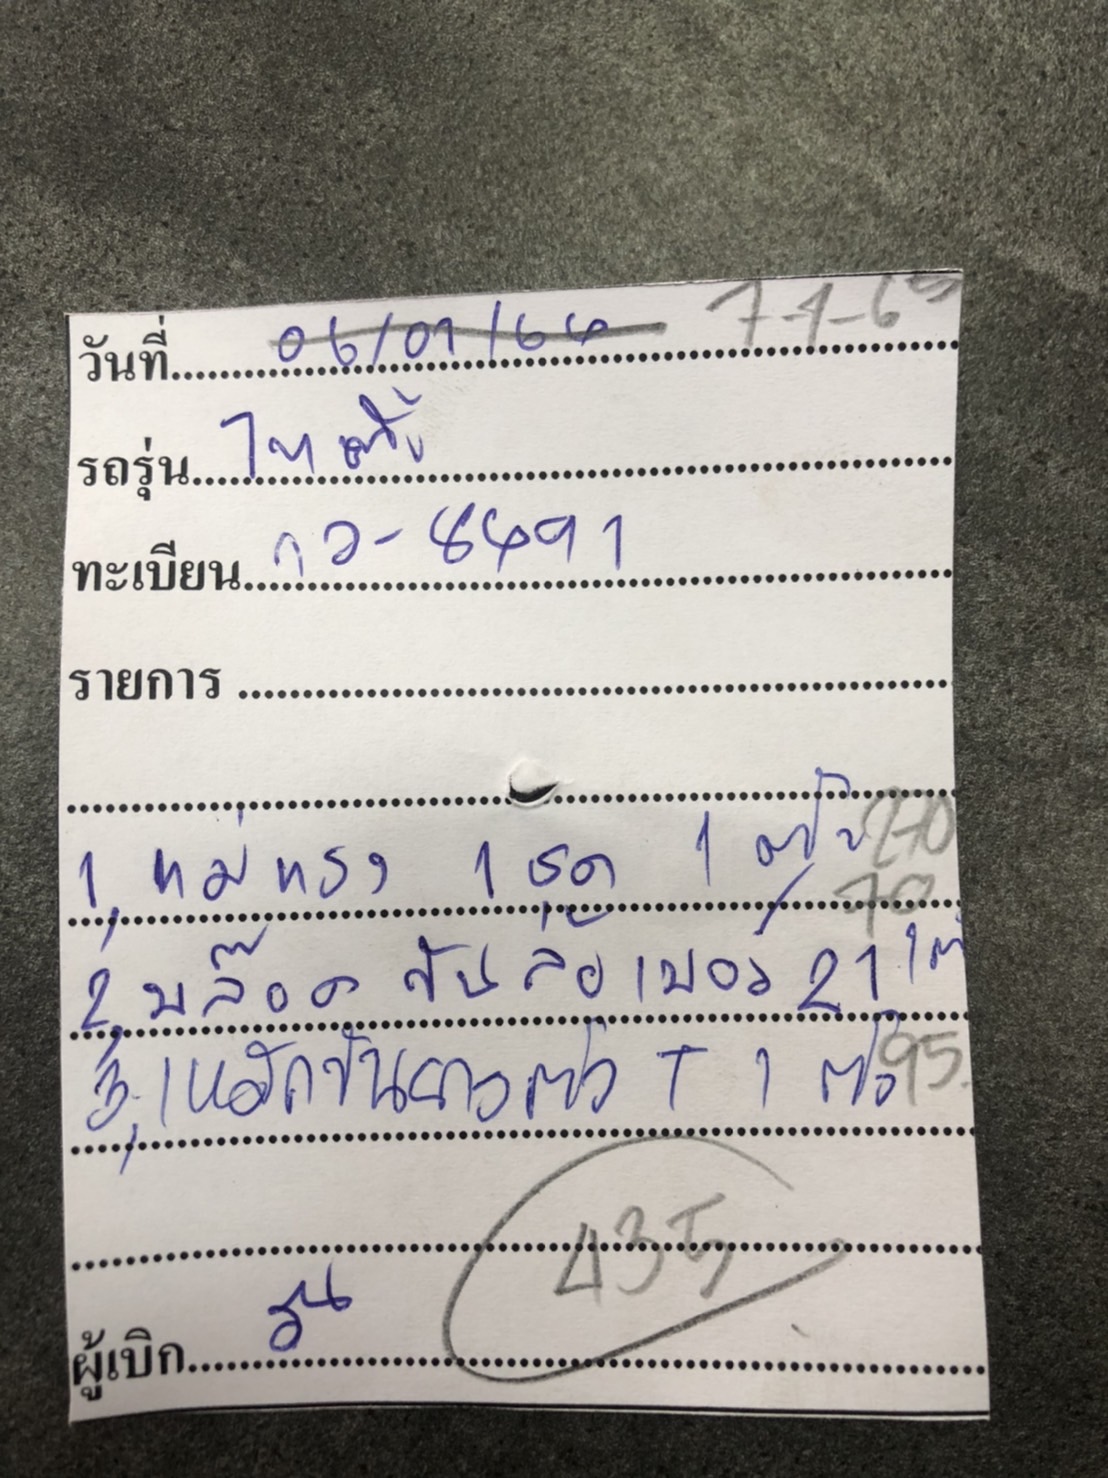 วันที่ 06/01/64 7-1-65
รถรุ่น
ทะเบียน กว-8491
รายการ
1, แม่แรง 1 ชุด 1 ตัว 270
70
2, บล๊อค ขันล้อ เบอร์ 21 1 ตั
3, เหล็กขันยาวตัว T 1 ตัว 95
435
ผู้เบิก